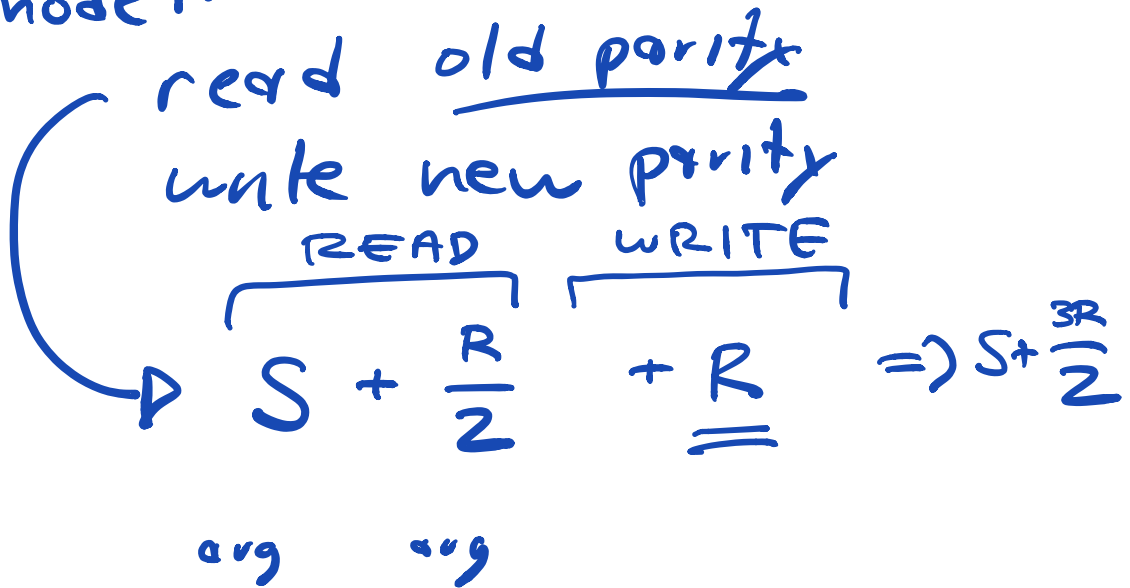 read old parity
write new parity
READ WRITE
S + R/2 + R => S + 3R/2
avg avg